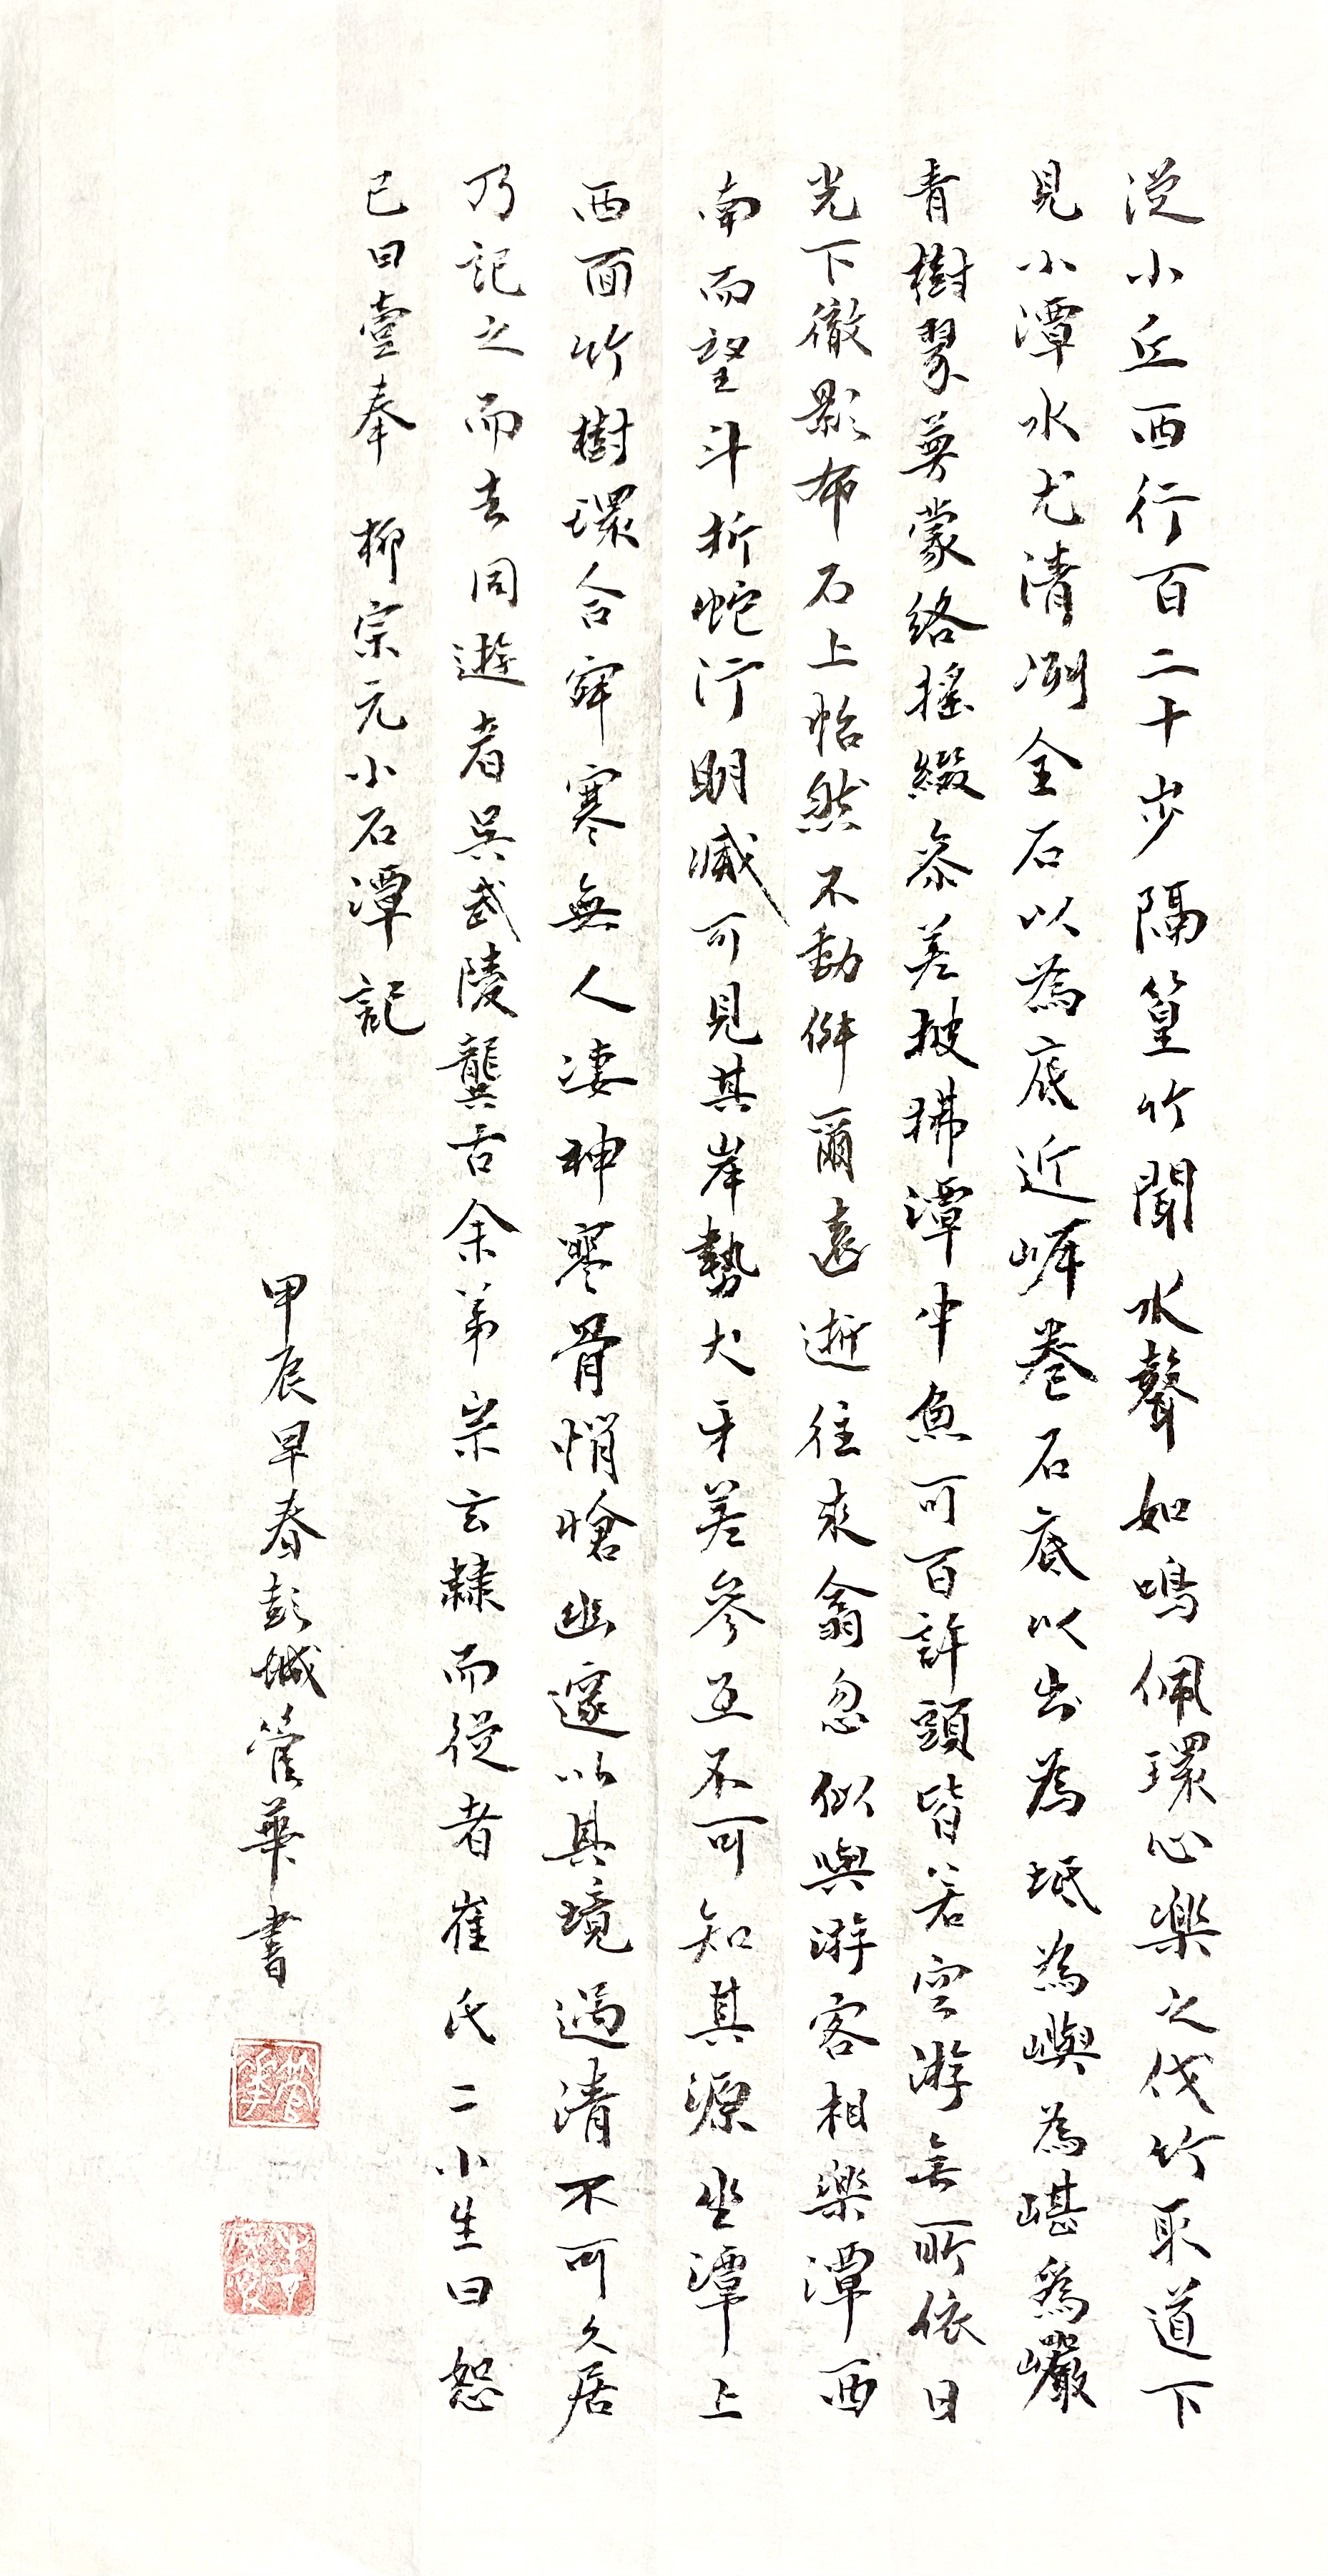 從小丘西行百二十步隔篁竹聞水聲如鳴佩環心樂之伐竹取道下
見小潭水尤清冽全石以為底近崖卷石底以出為坻為嶼為嵁為巖
青樹翠蔓蒙絡搖綴參差披拂潭中魚可百許頭皆若空游無所依日
光下徹影布石上怡然不動俶爾遠逝往來翕忽似與游客相樂潭西
南而望斗折蛇行明滅可見其岸勢犬牙差參互不可知其源坐潭上
西面竹樹環合寂寥無人凄神寒骨悄愴幽邃以其境過清不可久居
乃記之而去同遊者吳武陵龔古余弟宗玄隸而從者崔氏二小生曰恕
已曰壹奉 柳宗元小石潭記
甲辰早春彭城管華書